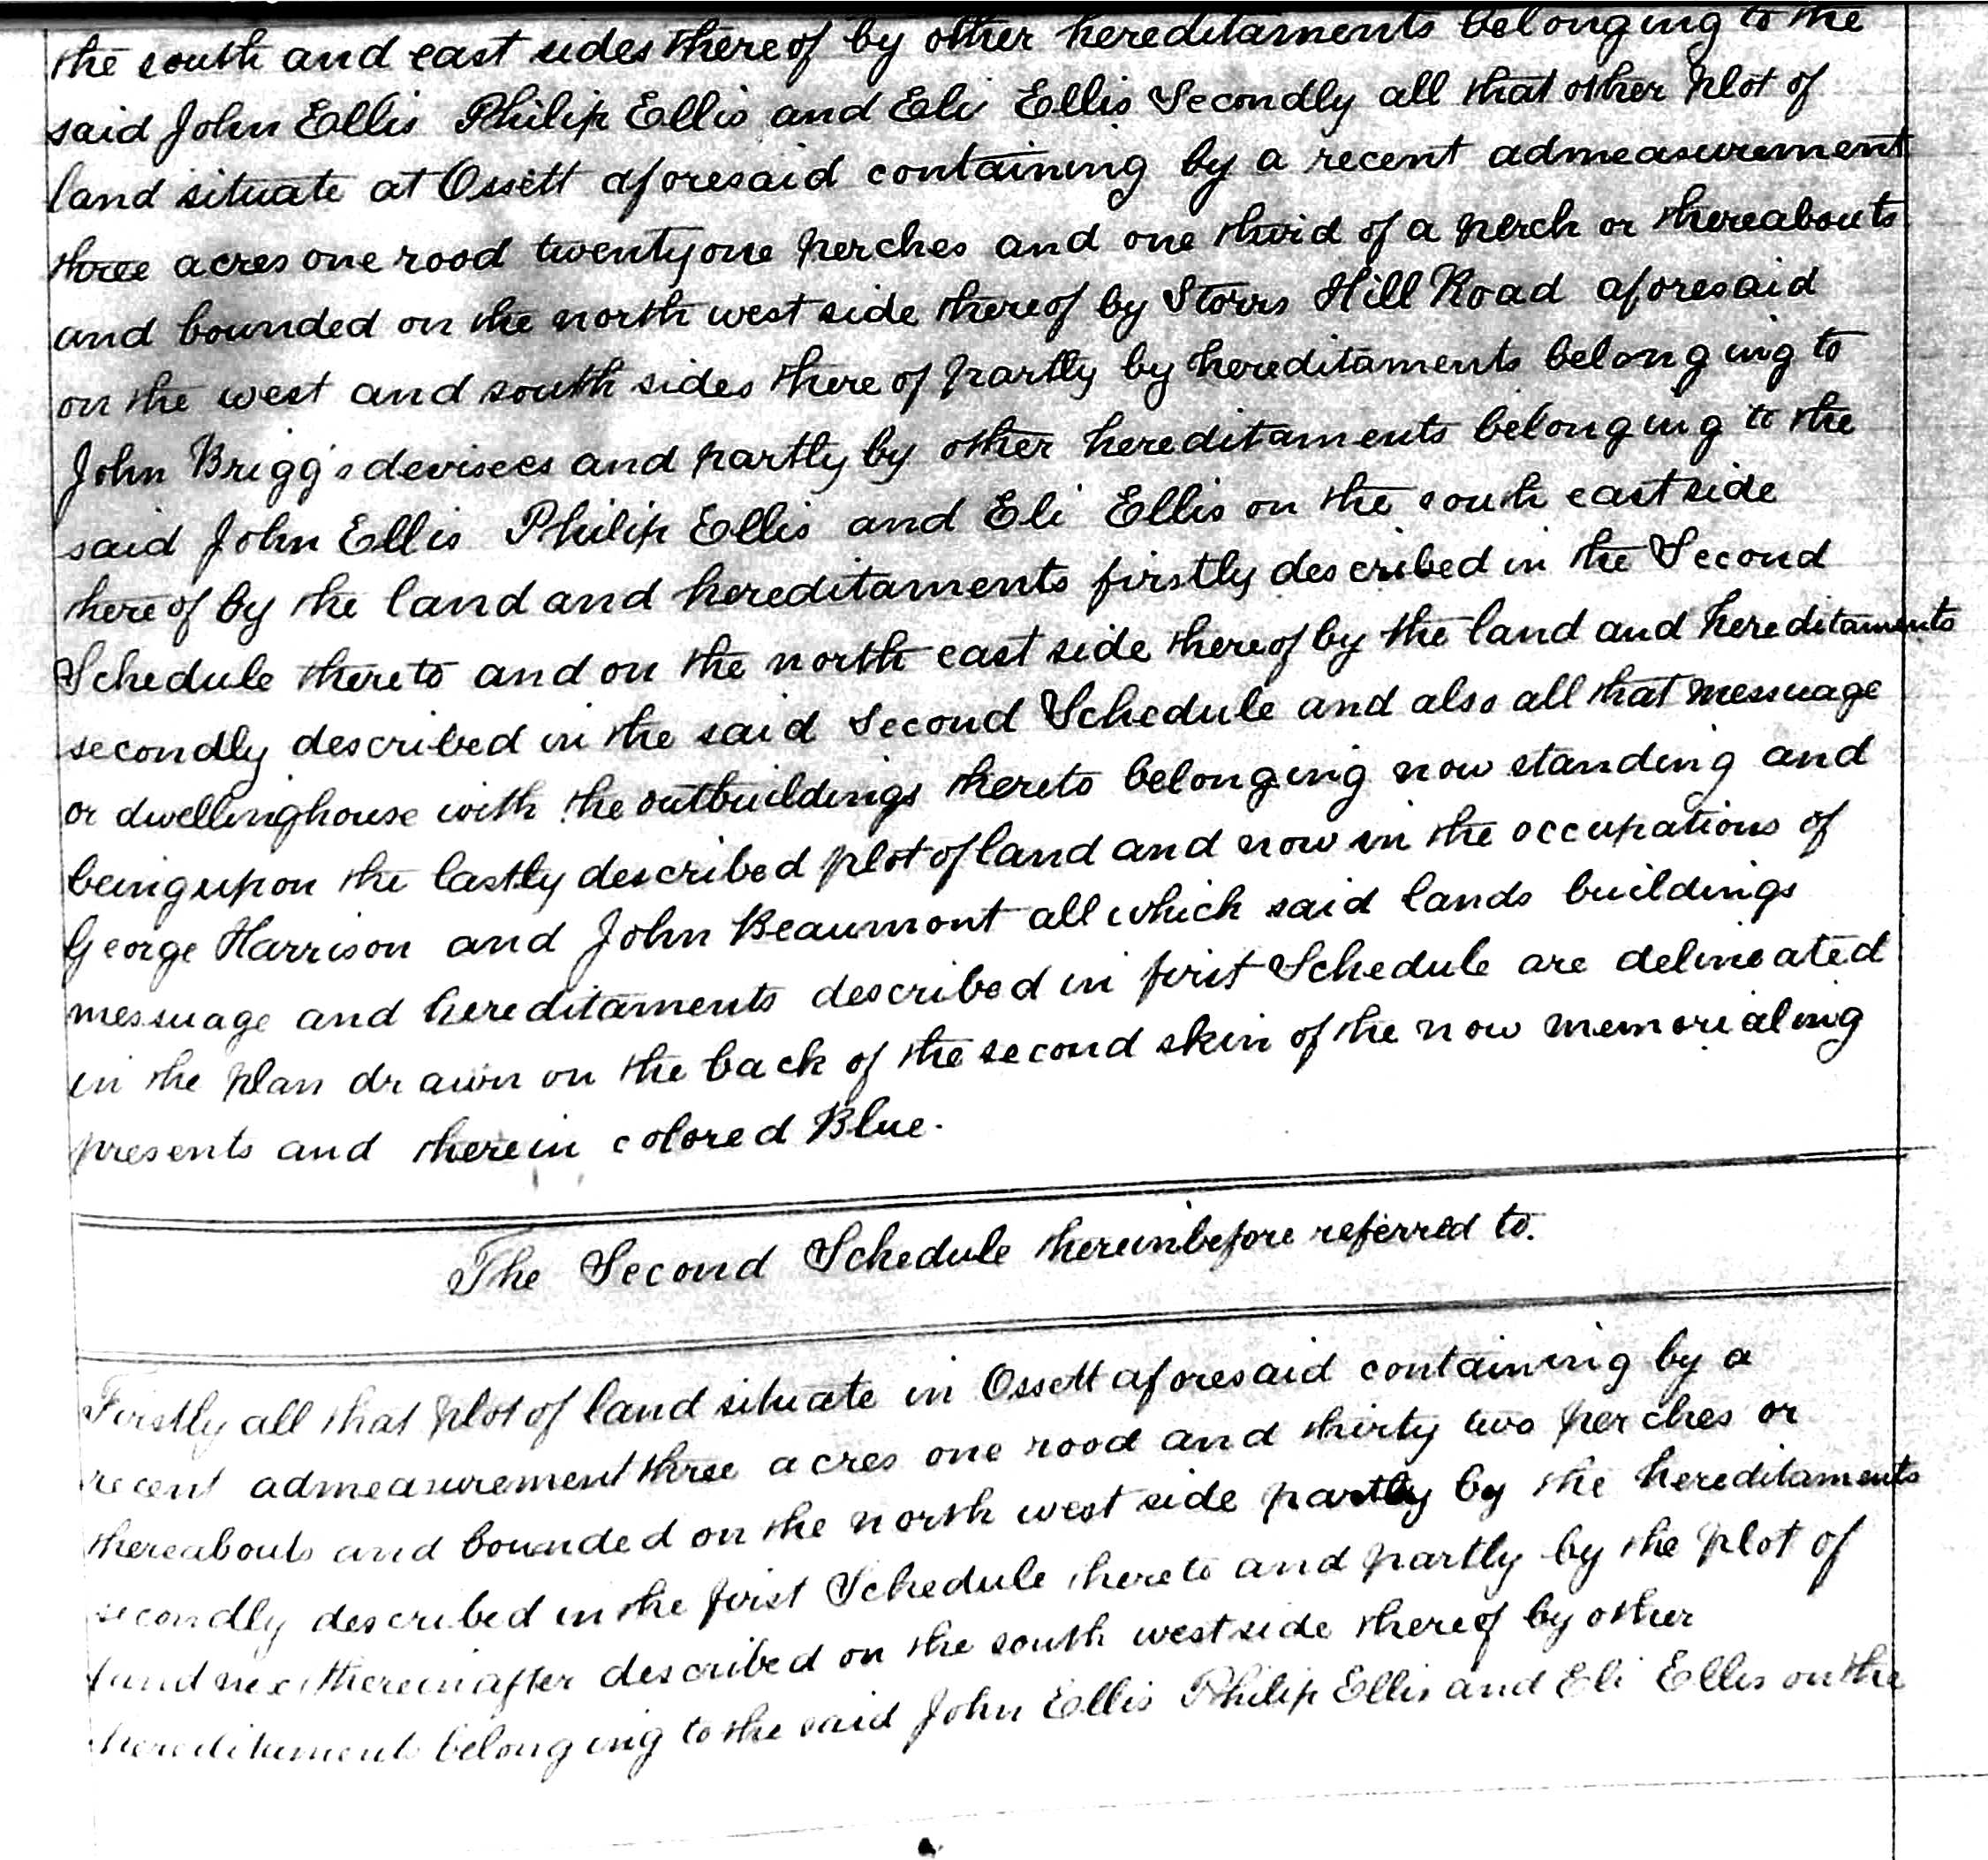 the south and east sides thereof by other hereditaments belonging to the
said John Ellis Philip Ellis and Eli Ellis Secondly all that other plot of
land situate at Ossett aforesaid containing by a recent admeasurement
three acres one rood twentyone perches and one third of a perch or thereabouts
and bounded on the north west side thereof by Storrs Hill Road aforesaid
on the west and south sides thereof partly by hereditaments belonging to
John Brigg's devisees and partly by other hereditaments belonging to the
said John Ellis Philip Ellis and Eli Ellis on the south east side
thereof by the land and hereditaments firstly described in the Second
Schedule thereto and on the north east side thereof by the land and hereditaments
secondly described in the said Second Schedule and also all that messuage
or dwellinghouse with the outbuildings thereto belonging now standing and
being upon the lastly described plot of land and now in the occupations of
George Harrison and John Beaumont all which said lands buildings
messuage and hereditaments described in first Schedule are delineated
in the plan drawn on the back of the second skin of the now memorialing
presents and therein colored Blue.
The Second Schedule hereinbefore referred to.
Firstly all that plot of land situate in Ossett aforesaid containing by a
recent admeasurement three acres one rood and thirty two perches or
thereabouts and bounded on the north west side partly by the hereditaments
secondly described in the first Schedule thereto and partly by the plot of
land next thereinafter described on the south west side thereof by other
hereditaments belonging to the said John Ellis Philip Ellis and Eli Ellis on the